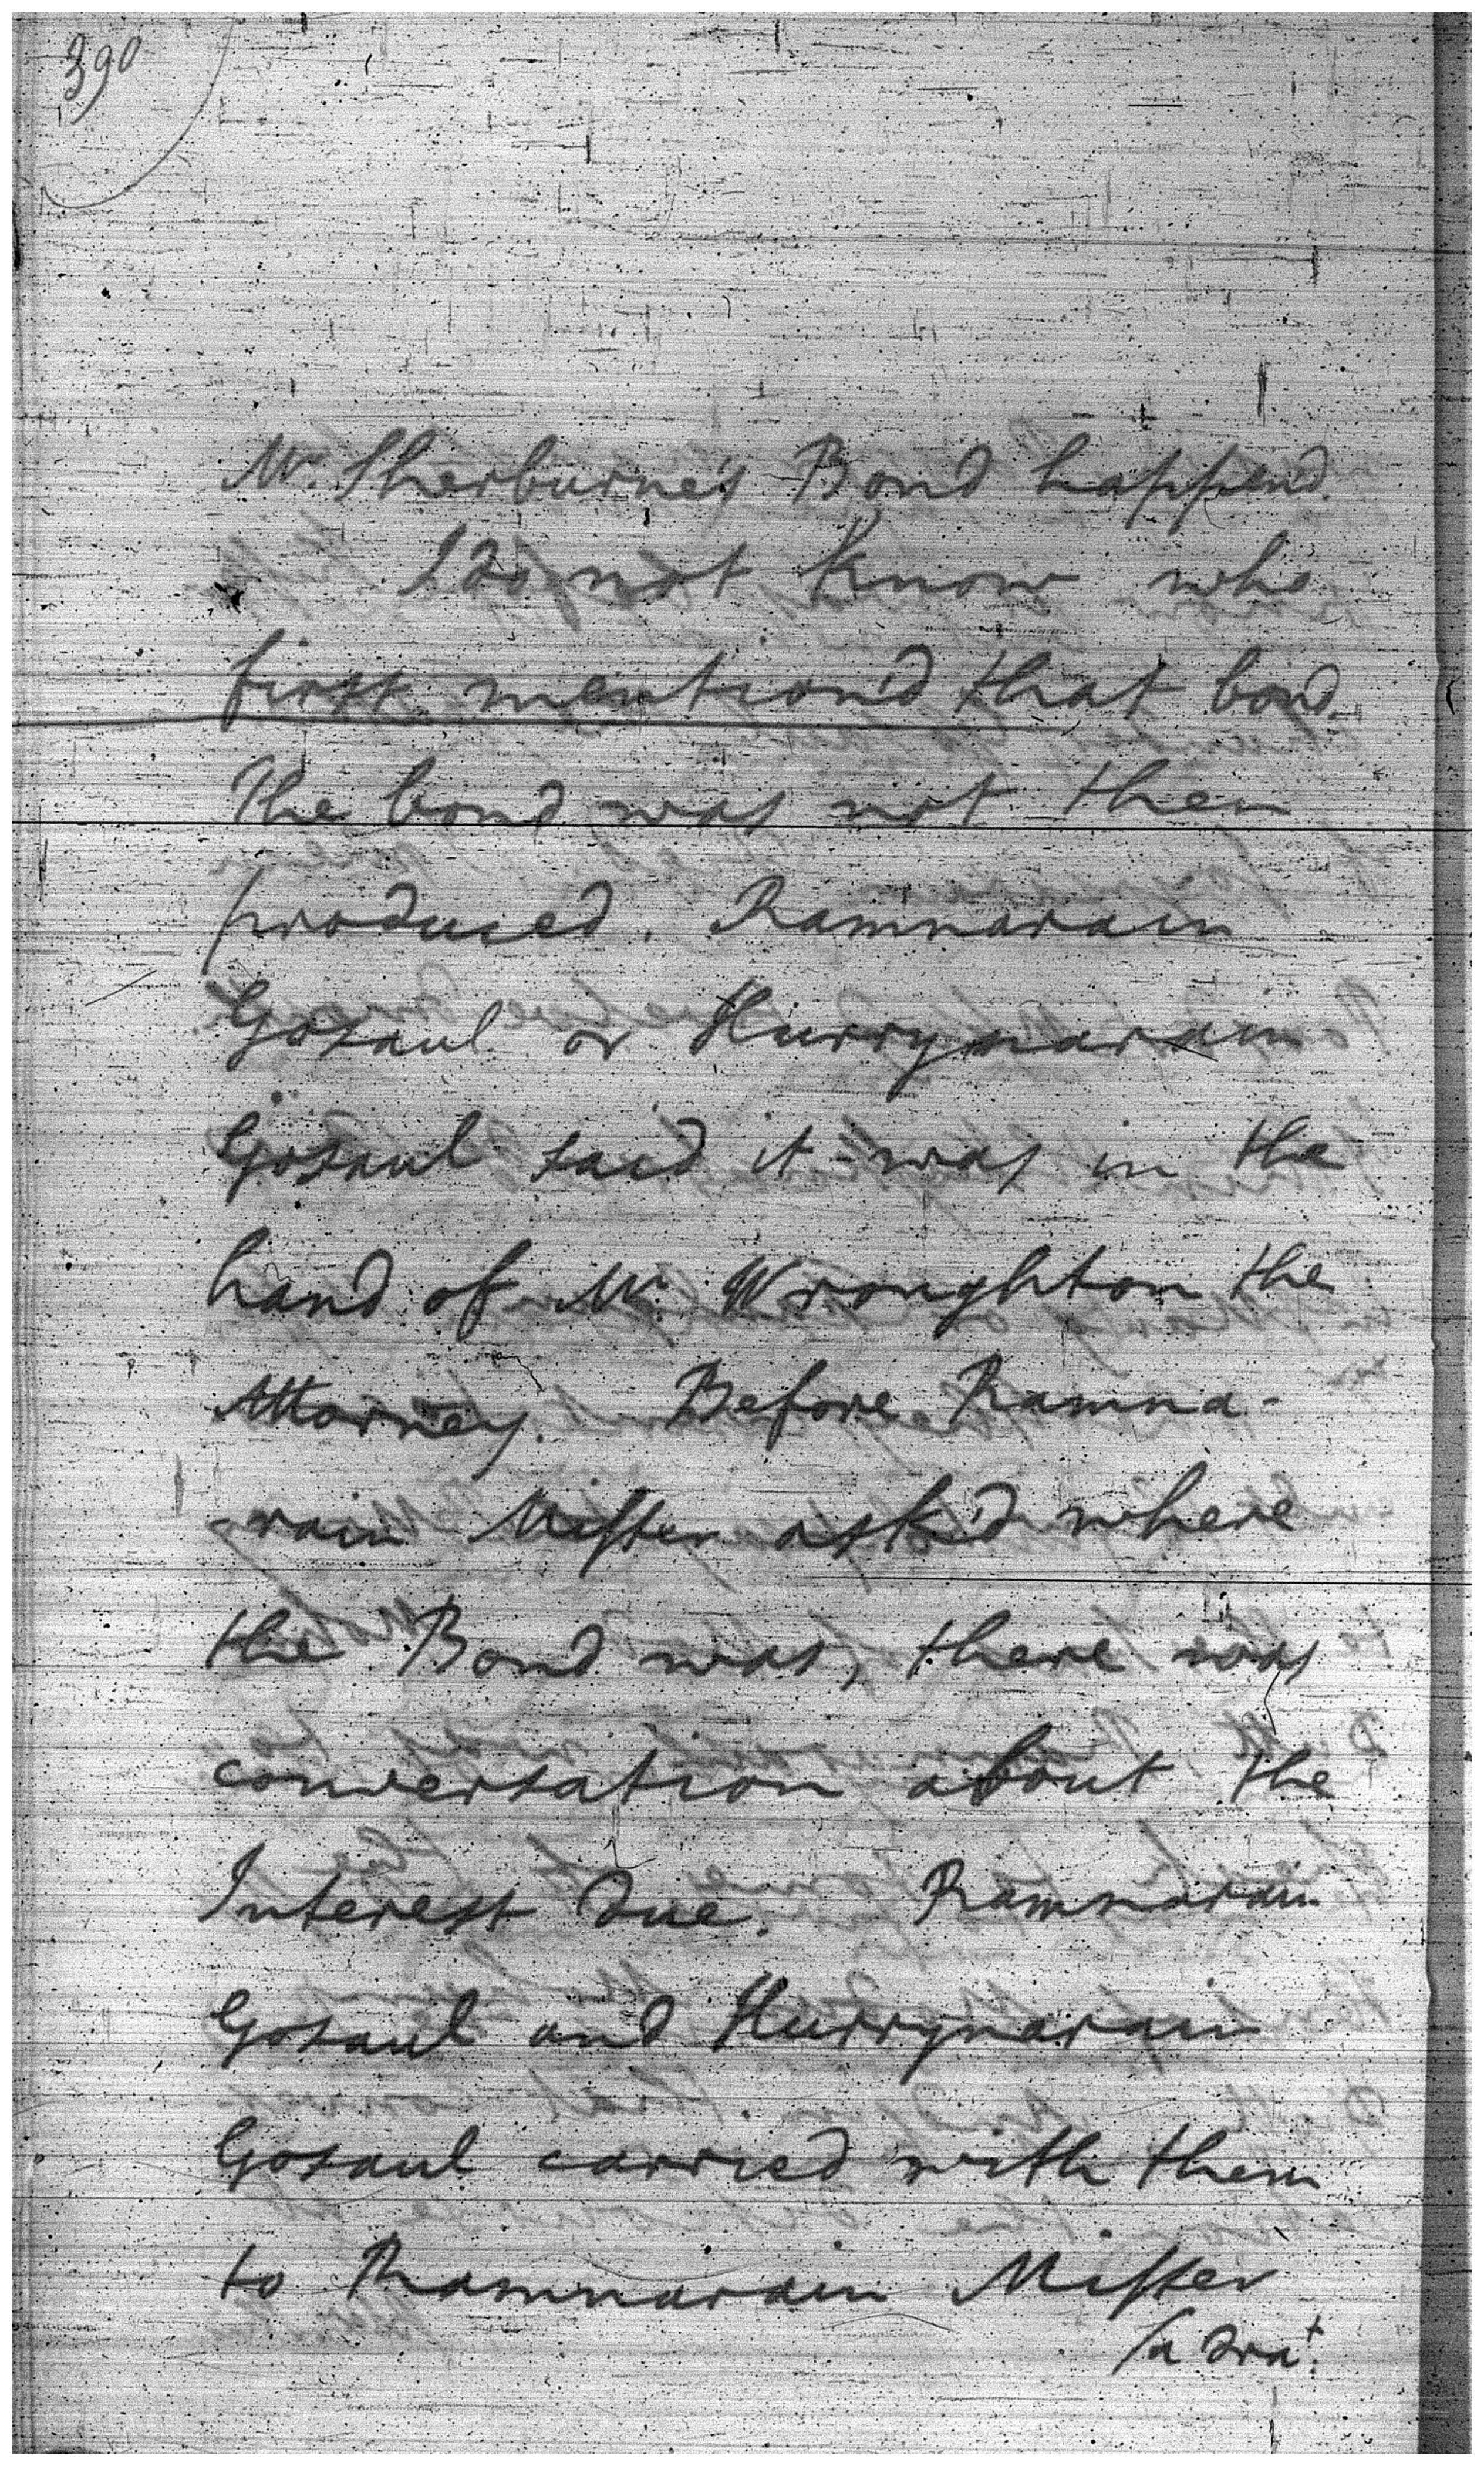 390
Mr. Sherburne's Bond happend.
I do not know who
first mention'd that bond.
The bond was not then
produced. Ramnarain
Gosaul or Hurrynarain
Gosaul said it was in the
hand of Mr. Wroughton the
Attorney. Before Ramna-
-rain Misser ask'd where
the Bond was, there was
conversation about the
Interest due. Ramnarain
Gosaul and Hurrynarain
Gosaul carried with them
to Ramnarain Misser
(a dra.t